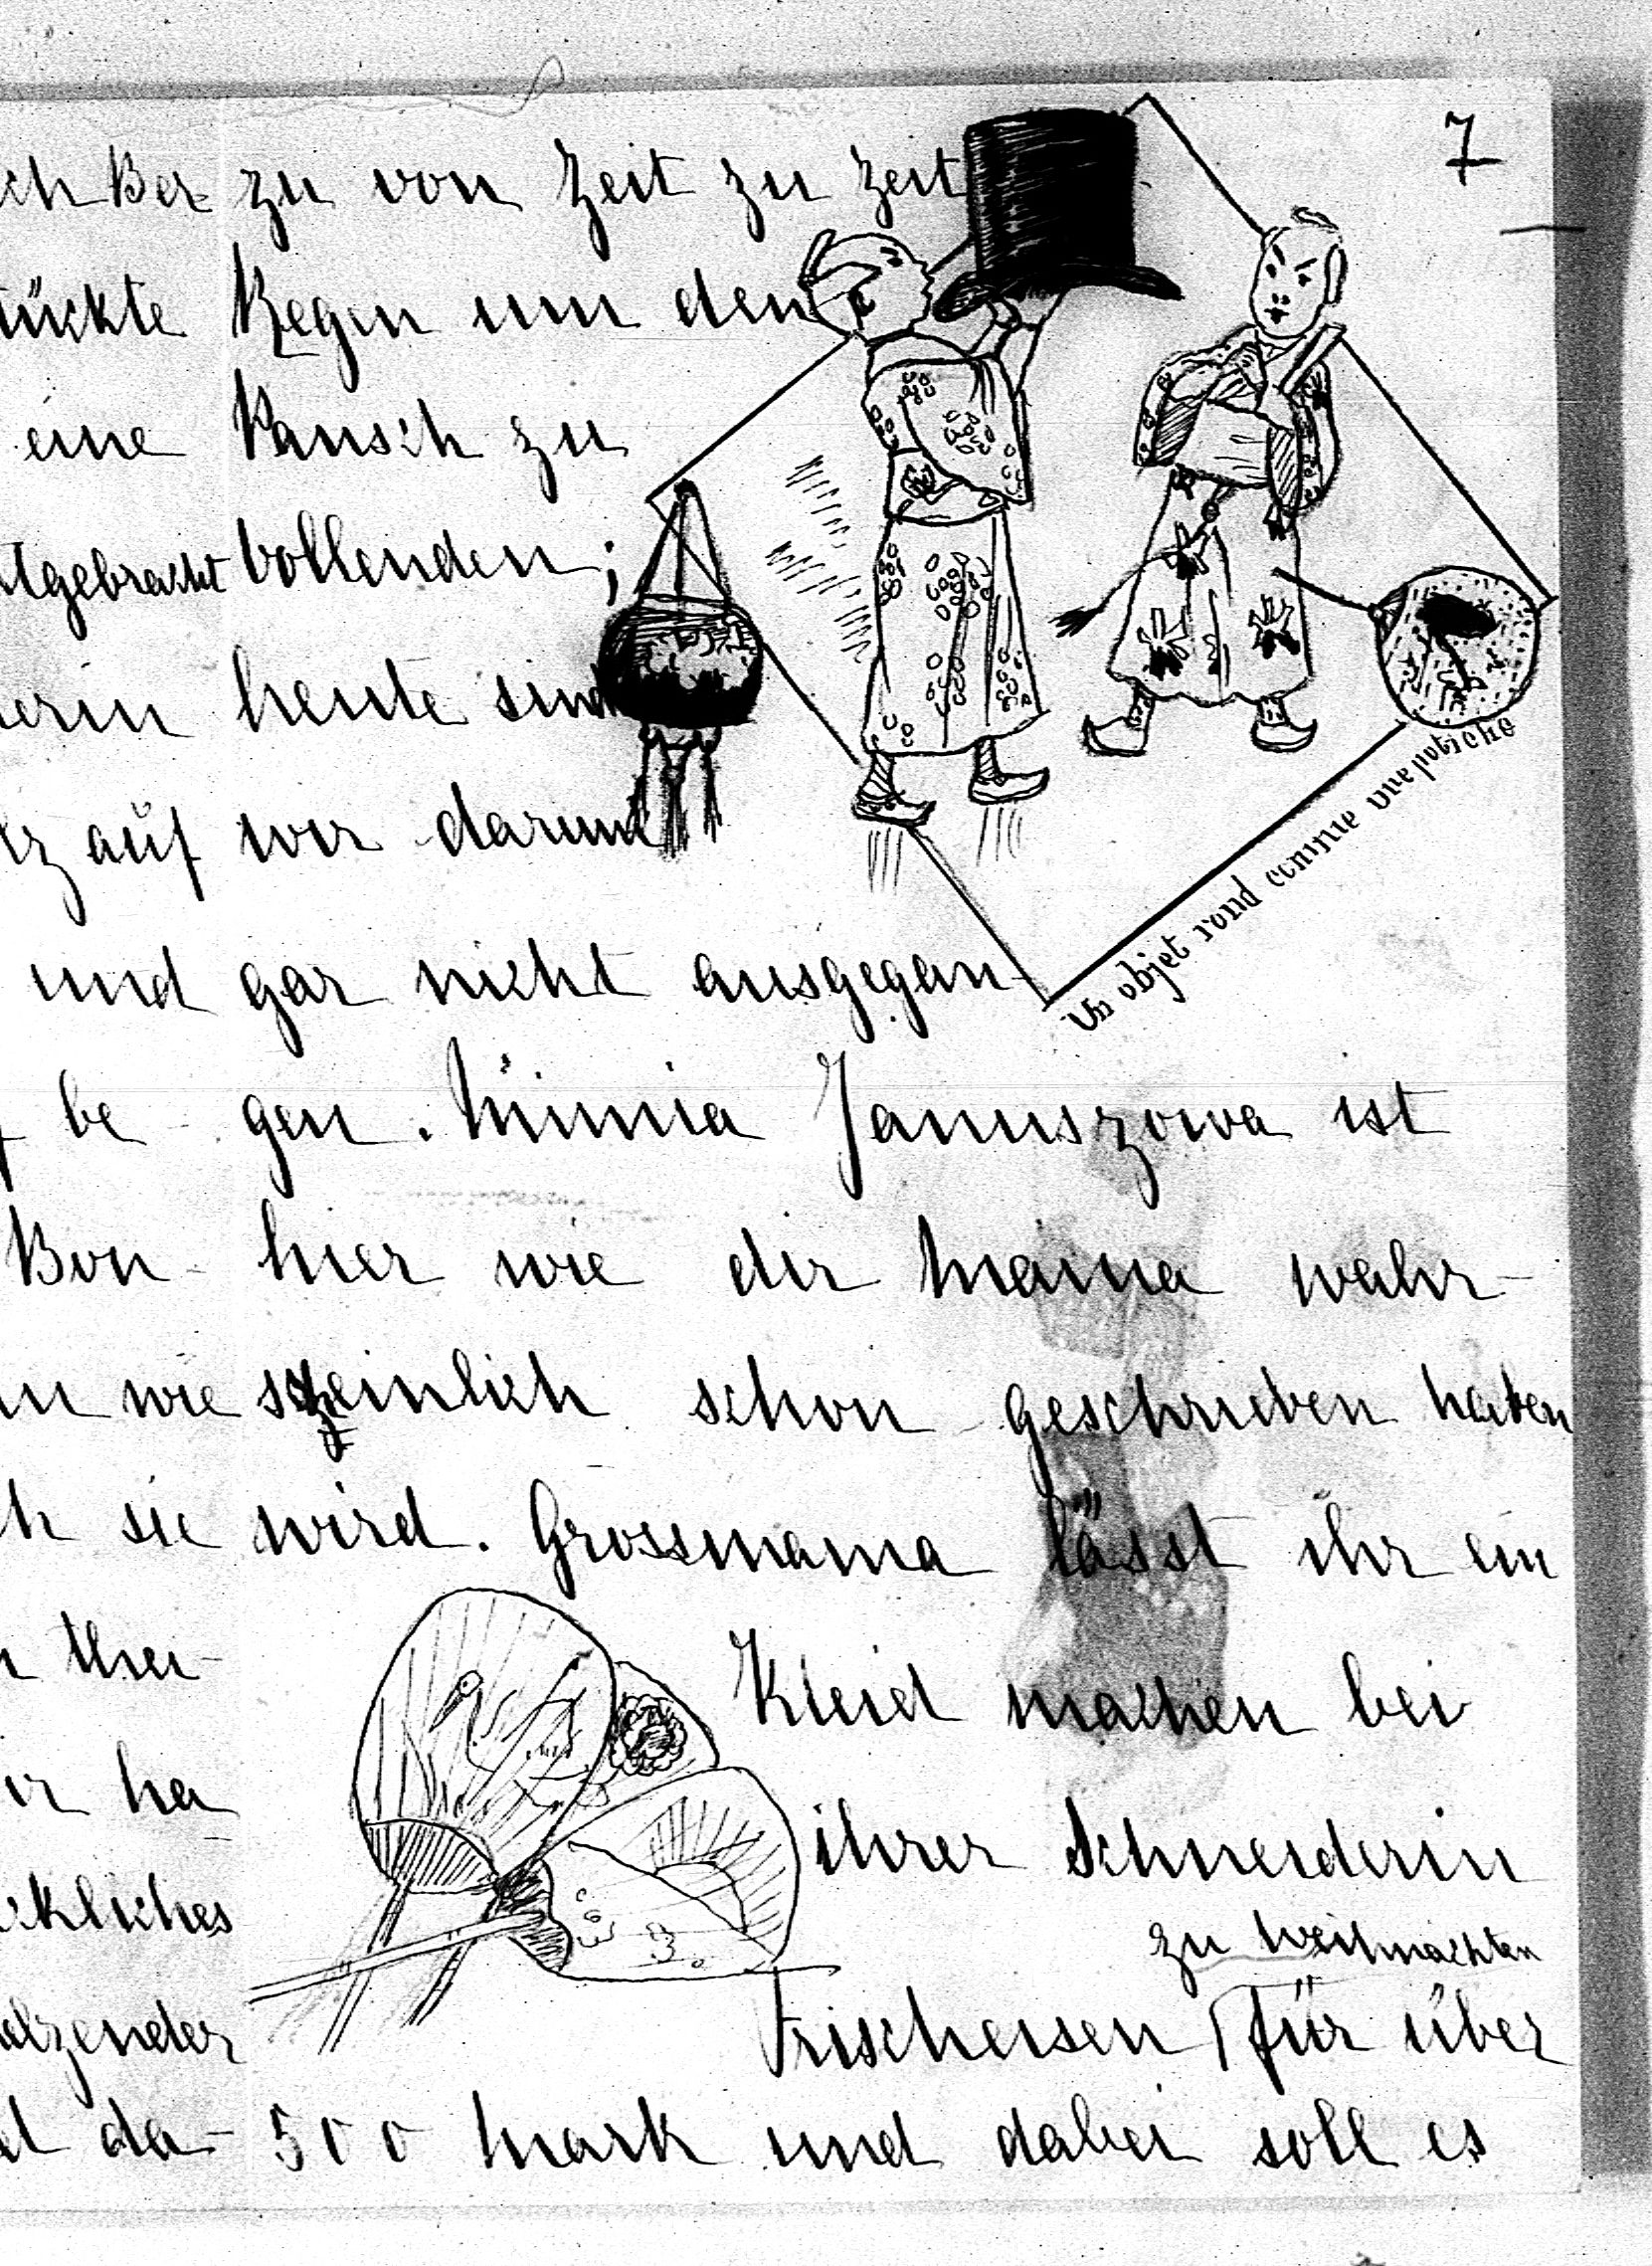 ch Ber-
tückte
eine
tgebracht
erin
lz auf
und
be
Bon-
n wie
h sie
ther-
ir ha
ckliches
lzender
da-
7
zu von Zeit zu Zeit
Regen um den
Pansch zu
vollenden;
heute sind
wir darum
gar nicht ausgegan
Un objet rond comme une potiche
gen. Mimia Januszowa ist
hier wie dir Mama wahr-
scheinlich schon geschrieben haben
wird. Grossmama lässt ihr ein
Kleid machen bei
ihrer Schneiderin
zu Weihnachten
Frischeisen für über
500 Mark und dabei soll es